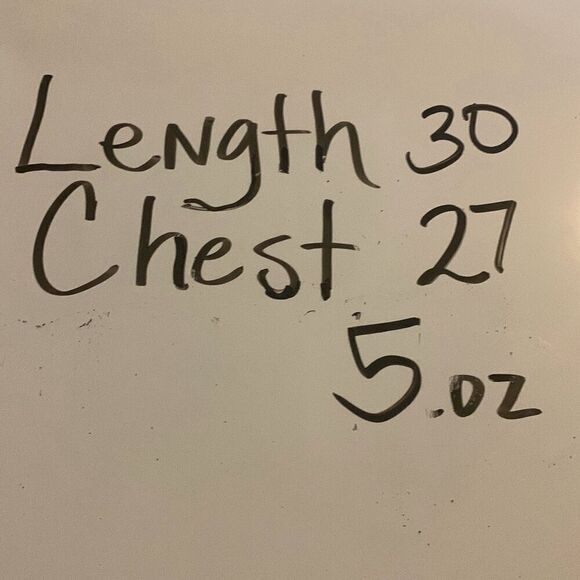 Length 30
Chest 27
5.oz